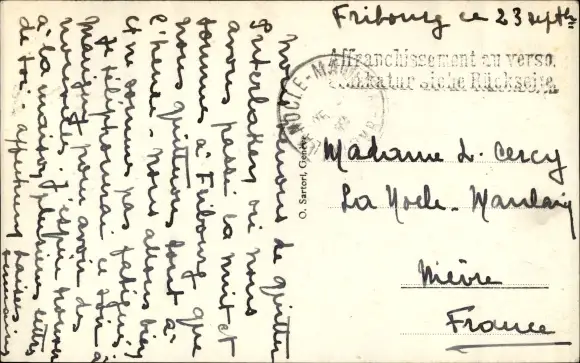 Fribourg ce 23 septbre
Affranchissement au verso.
Frankatur siehe Rückseite.
Nous venons de quitter
Interlaken où nous
avons passé la nuit et
sommes à Fribourg que
nous quitterons tout à
l'heure. nous allons bien
et ne sommes pas fatigués.
Je téléphonerai ce soir à
Marigny pour avoir des
nouvelles. J'espère trouver
à la maison plusieurs lettres
de toi. affectueux baisers
O. Sartori, Genève
Madame L. Cercy
La Nocle-Maulaix
Nièvre
France